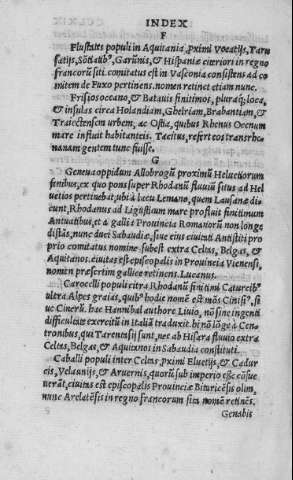 INDEX
F
Flustates populi in Aquitania, pximi Vocatijs, Taru
satijs, & Hispaniæ citeriori in regno
francorũ siti. comitatus est in Vasconia consistens ad co
mitem de Fuxo pertinens. nomen retinet etiam nunc.
Frisios oceano, & Batauis finitimos, pluraq; loca,
& insulas circa Holandiam, Ghelriam, Brabantiam, &
Traiectensem urbem, ac Ostia, quibus Rhenus Oceanum
mare influit habitanteis. Tacitus, refert eos transrhe-
nanam gentem tunc fuisse.
G
Geneua oppidum Allobrogũ proximũ Heluetiorum
finibus, ex quo pons super Rhodanũ fluuiũ situs ad Hel
uetios pertinebat, ubi à lacu Lemano, quem Lausanæ di
cunt, Rhodanus ad Ligusticum mare profluit finitimum
Antuatibus, et a gallia Prouincia Romanorũ non longe
distãs, nunc duci Sabaudiæ, siue eius ciuitati Antistiti pro
prio comitatus nomine subest extra Celtas, Belgas, &
Aquitanos. ciuitas est episcopalis in Prouincia Vienensi,
nomen præsertim gallice retinens. Lucanus.
Carocelli populi citra Rhodanũ finitimi Caturcib⁹
ultra Alpes graias, quib⁹ hodie nomẽ est mõs Cinisi⁹, si
uc Cinerũ. hac Hannibal authore Liuio, nõ sine ingenti
difficultate exercitũ in Italiã traduxit. hi nõ lõge à Cen
tronibus, qui Tarentasij sunt, nec ab Hisara fluuio extra
Celtas, Belgas, & Aquitanos in Sabaudia constituti.
Caballi populi inter Celtas, pximi Eluetijs, & Cadur
cis, Velaunijs, & Aruernis, quorũ sub imperio esse cõsue
uerãt, ciuitas est episcopalis Prouinciæ Bituricẽsis olim,
nunc Arelatẽsis in regno francorum sita nomẽ retinẽs.
Genabis